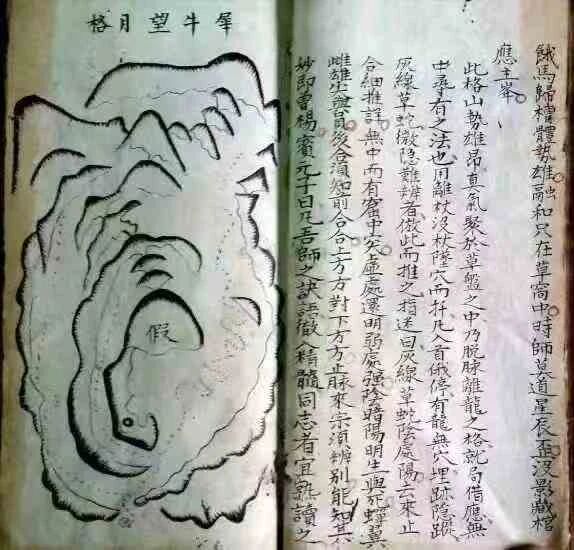 餓馬歸槽體勢雄融和只在草窩中時師莫道星辰歪沒影藏棺
應主峯
此格山勢雄昂真氣聚於草盤之中乃脫脉離龍之格就局借應無
中尋有之法也用離杖沒杖墜穴而扦凡入首俄停有龍無穴埋跡隱蹤
灰線草蛇微隱難辨者倣此而推之指迷曰灰線草蛇陰處陽云來止
合細推詳無中而有窩中突虛處還明弱處強陰暗陽明生與死蟬翼
雌雄尖與圓後合須知前合合上方方對下方方止脉來宗須辨別能知其
妙即曾楊賓元子曰凡吾師之訣語徹入精髓同志者宜熟讀之
犀牛望月格
假